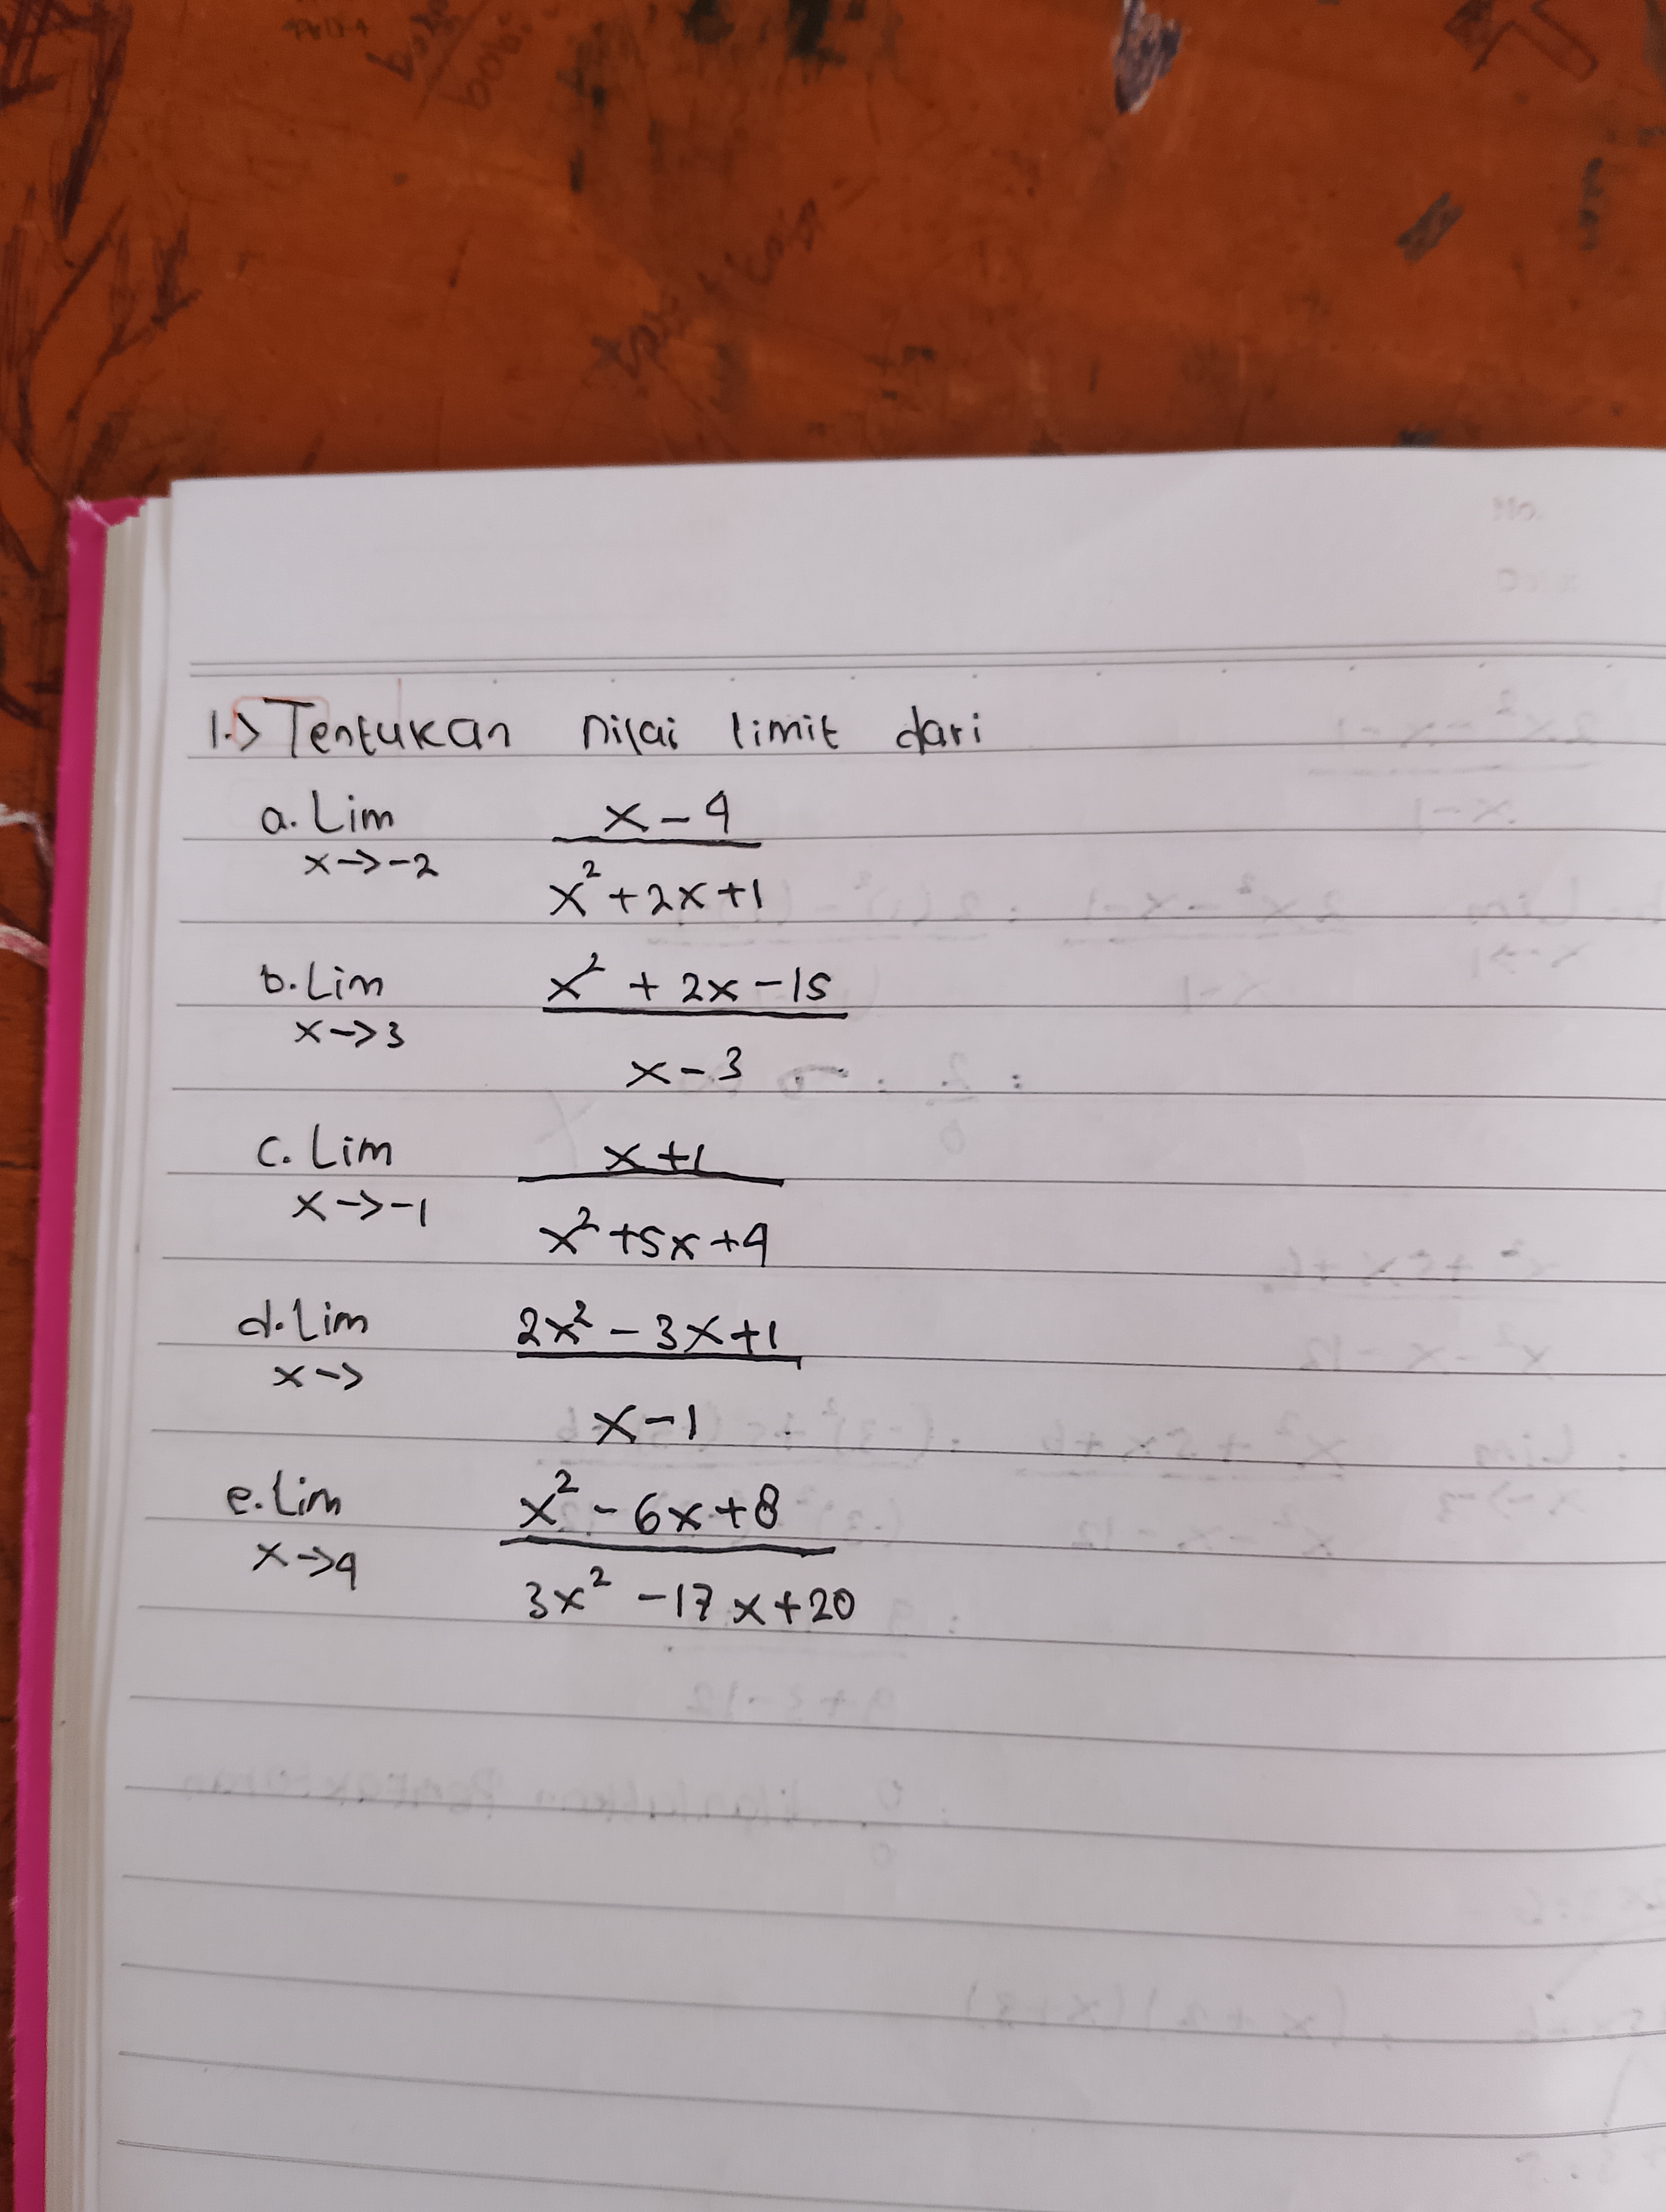 1.) Tentukan nilai limit dari
a. Lim x - 4
x→-2 x² + 2x + 1
b. Lim x² + 2x - 15
x→3 x - 3
c. Lim x + 1
x→-1 x² + 5x + 4
d. Lim 2x² - 3x + 1
x→ x - 1
e. Lim x² - 6x + 8
x→4 3x² - 17x + 20